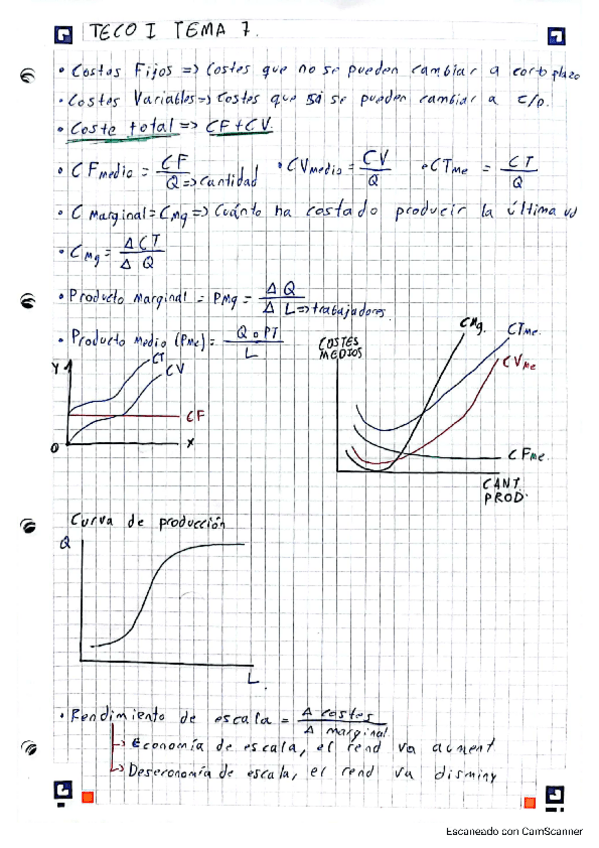 TECO I TEMA 7.
• Costos Fijos => Costes que no se pueden cambiar a corto plazo
• Costes Variables => Costes que si se pueden cambiar a c/p.
• Coste total => CF + CV.
• CFmedio = CF / Q => cantidad • CVmedio = CV / Q • CTMe = CT / Q
• C Marginal = CMg => Cuánto ha costado producir la última ud
• CMg = Δ CT / Δ Q
• Producto Marginal = PMg = Δ Q / Δ L => trabajadores.
• Producto Medio (PMe) = Q o PT / L
Y CT CV
CF
O X
COSTES MEDIOS CMg. CTMe.
CVMe
CFMe.
CANT. PROD.
Curva de producción
Q
L.
• Rendimiento de escala = Δ costes / Δ marginal
Economía de escala, el rend va aument
Deseconomía de escala, el rend va disminy
Escaneado con CamScanner